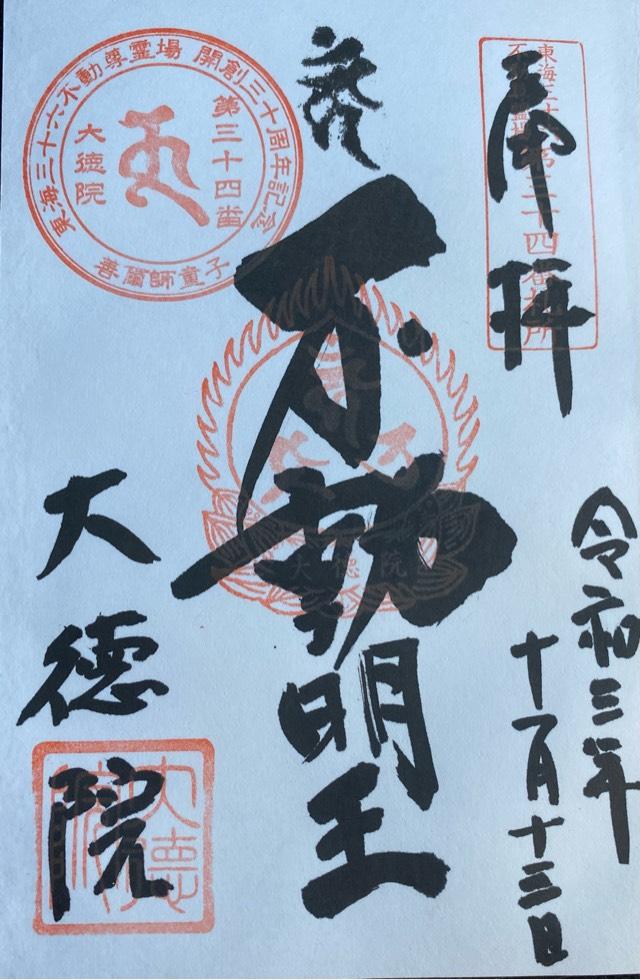 奉拝
東海三十六不動尊霊場第三十四番札所
令和三年
十一月十三日
不動明王
大徳院
東海三十六不動尊霊場 開創三十周年記念
第三十四番
大徳院
善爾師童子
大徳院
大徳院